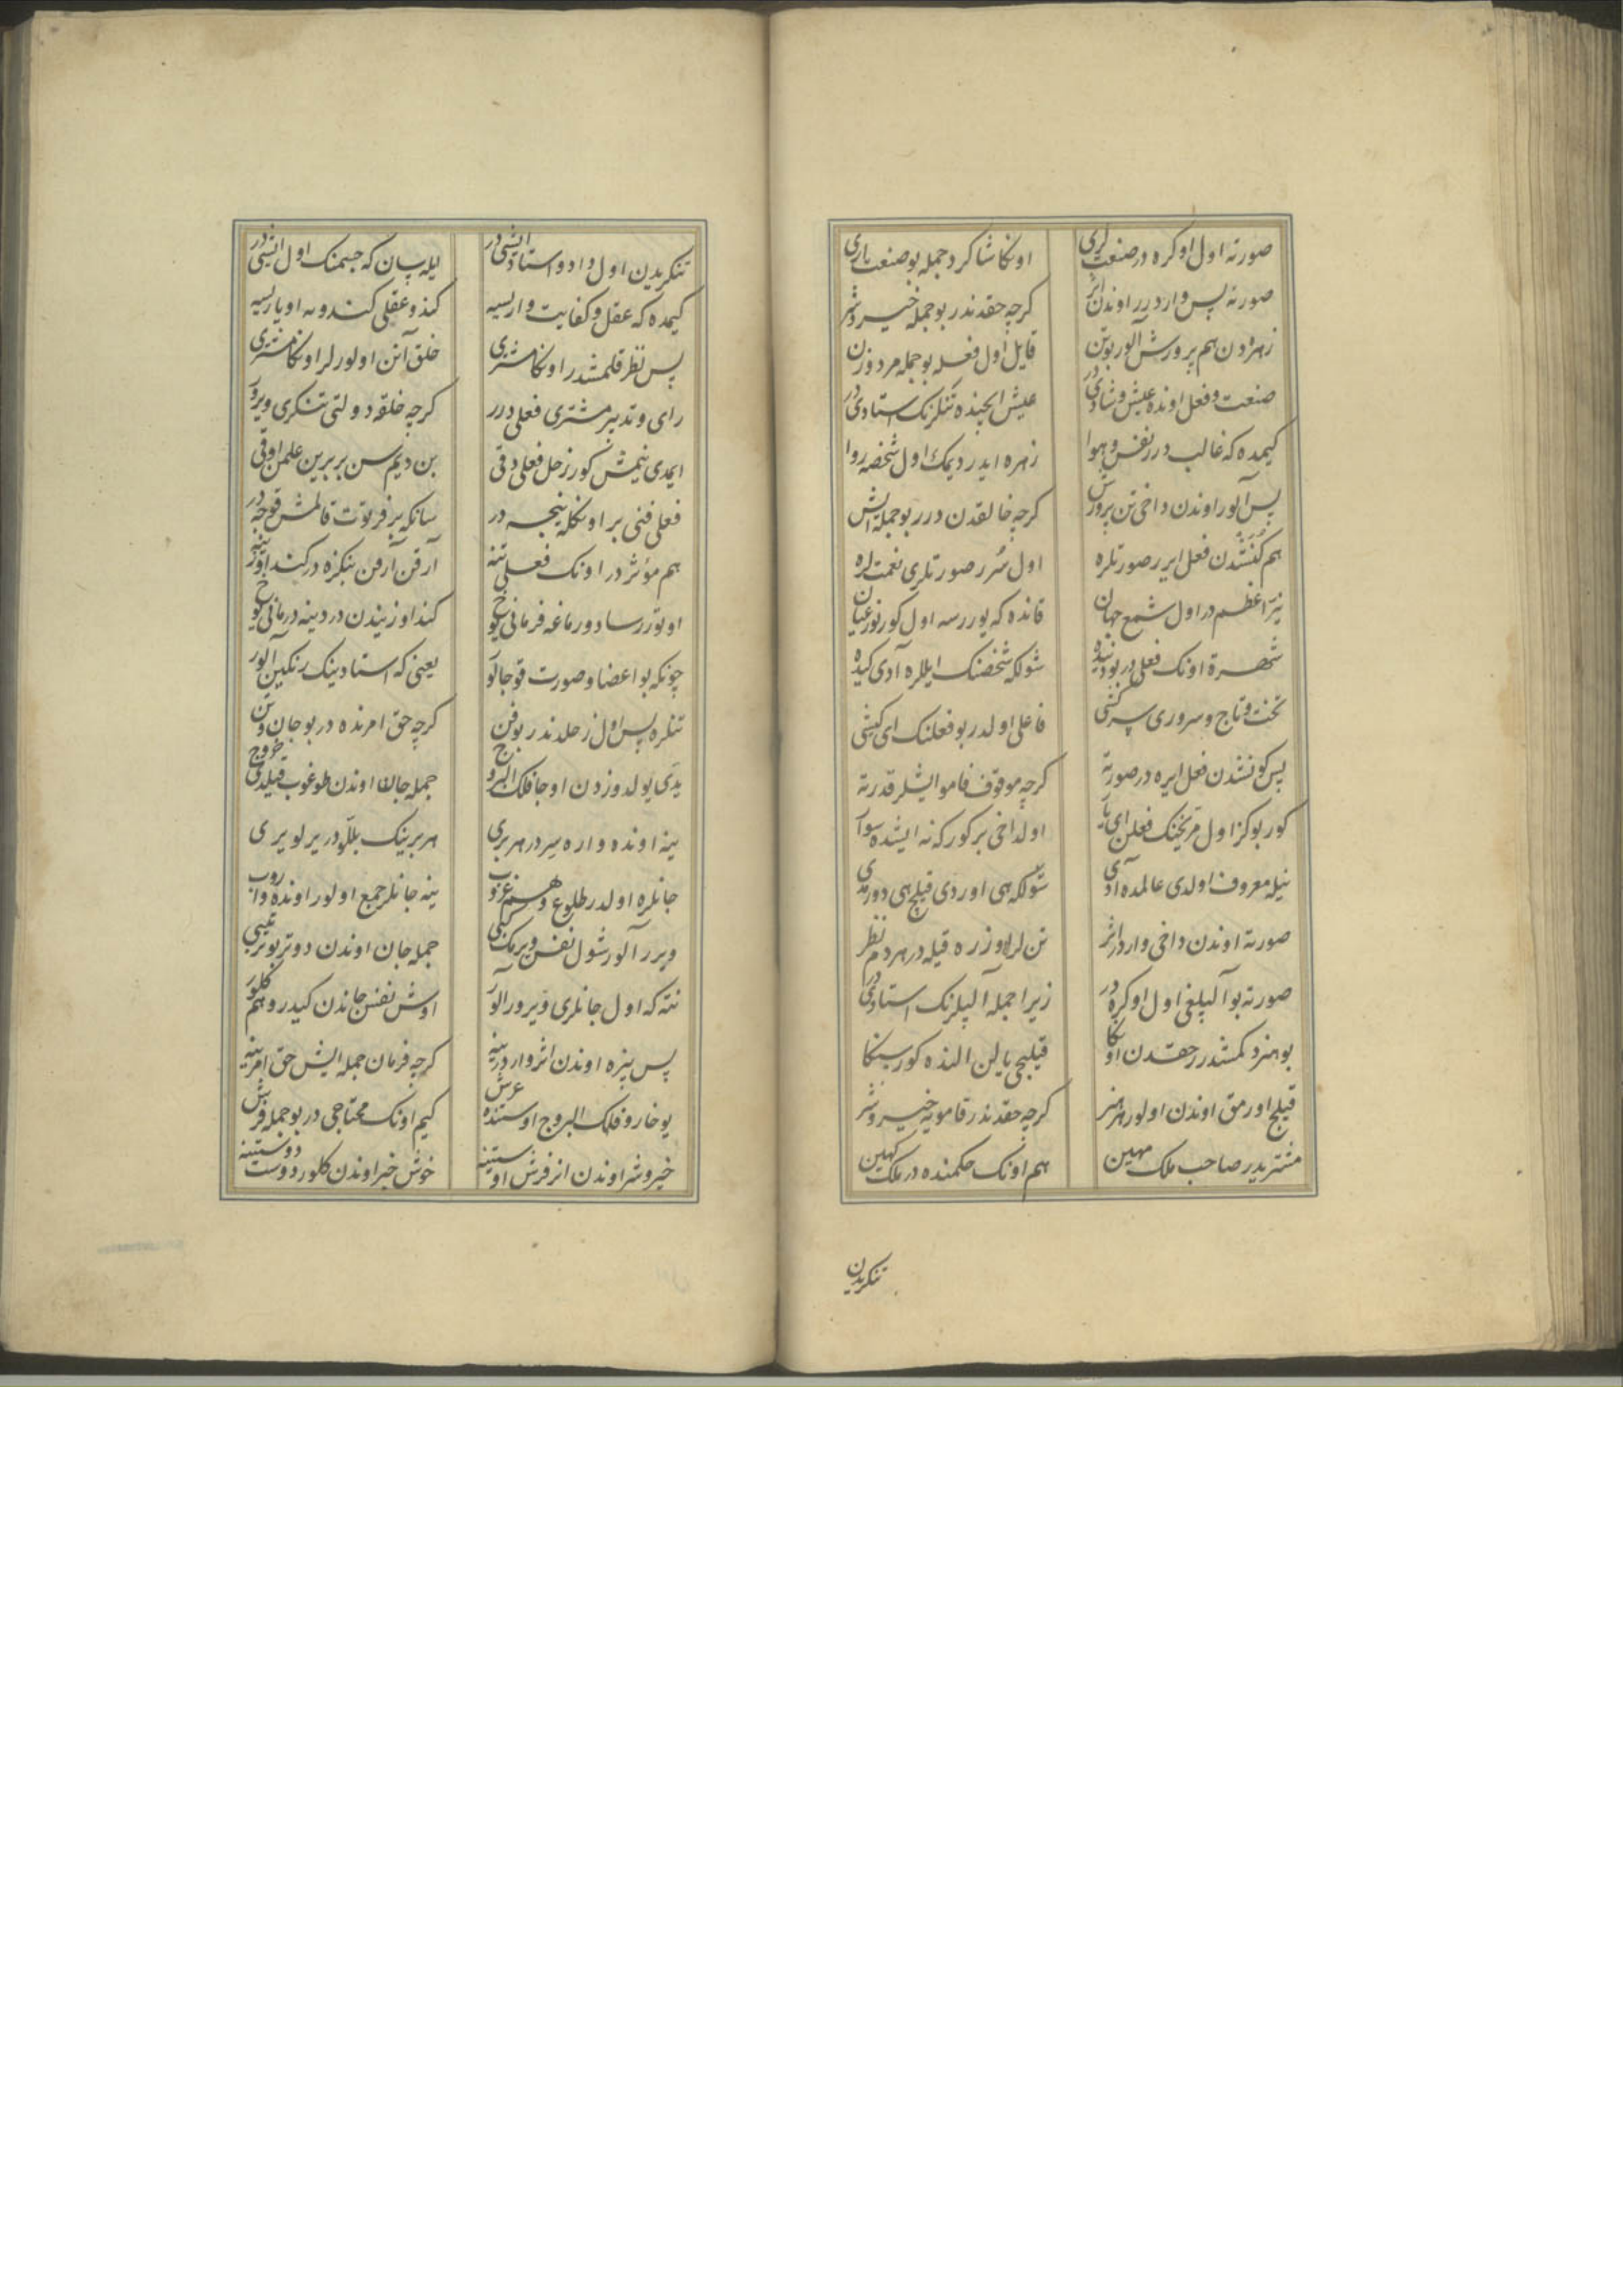 صورته اول اوكره در صنعت لری اونكا شاكرد جمله بو صنعت یاری
صورته پس وار درر اوندن اثر كرچه حقدندر بو جمله خیر و شر
زهرادن هم پرورش آلور بو تن قایل اول فعله بو جمله مرد و زن
صنعت و فعل اونده عیش و شادی در عیش ایچنده تنكرنك استادی در
كیمده كه غالب درر نفس و هوا زهره ایدر دیمك اول شخصه روا
پس آلور اوندن داخی تن پرورش كرچه خالقدن درر بو جمله ایش
هم كنشدن فعل ایرر صورتلره اول سرر صورتلری نعمت لره
نیّر اعظم در اول شمع جهان قانده كه یوررسه اول كورنور عیان
شهرة اونك فعلی در بو دنیده شولكه شخصنك ایللره آدی كیده
تخت و تاج و سروری سركشی فاعلی اولدر بو فعلنك ای كیشی
پس كونشدن فعل ایره در صورته كرچه موقوف قامو ایشلر قدرته
كور بو كز اول مریخنك فعلن ای یار اولداخی بر كور كه نه ایشده سوار
نیله معروف اولدی عالمده آدی شولكه هی اوردی قیلج هی دورمدی
صورته اوندن داخی وار در اثر تن لر اوزره قیله در هر دم نظر
صورته بو آلپلغی اول اوكره در زیرا جمله آلپلرنك استادی در
بو هنر دكمشدرر حقدن اونكا قیلیجی یالن النده كور سنكا
قیلج اورمق اوندن اولور هر هنر كرچه حقدندر قامویه خیر و شر
مشتریدر صاحب ملك مهین هم اونك حكمنده در ملك كهین
تنكریدن
تنكریدن اول داد و استاد ایشی در ایله بیان كه جسمنك اول ایشی در
كیمده كه عقل و كفایت واریسیه كندو عقلی كندویه اویاریسیه
پس نظر قلمشدر اونكا مشتری خلق آنن اولورلر اونكا مشتری
رای و تدبیر مشتری فعلی درر كرچه خلقه دولتی تنكری ویرر
ایمدی نیمش كور زحل فعلی دقی بن دیم سن بر برین علمن اوقی
فعلی فنی بر اونكله نیجه در سانكه بر فرتوت قالمش قوجه در
هم مؤثر در اونك فعلی تنه آرقن آرقن بنكزه در كند اوزینه
چونكه بو اعضا و صورت قوجالور یعنی كه استادینك رنكین آلور
تنكره پس اول زحلدندر بو فن كرچه حق امرنده در بو جان و تن
یدی یولدوزدن اوجا فلك البروج جمله جانلا اوندن طوغوب قیلدی خروج
ینه اونده واره سیر در هر بری هر برینك بللودر یرلو یری
جانلره اولدر طلوع و هم غروب ینه جانلر جمع اولور اونده واروب
ویرر آلور شول نفس ویرمك كبی جمله جان اوندن دوتر بو ترتیبی
نته كه اول جانلری ویرور آلور اوش نفس جاندن كیدر و هم كلور
پس بنزه اوندن اثر واردر ینه كرچه فرمان جمله ایش حق امرینه
یوخارو فلك البروج اوستنده عرش كیم اونك محتاجی در بو جمله فرش
خیر و شر اوندن انر فرش اوستینه خوش خبر اوندن كلور دوست دوستینه